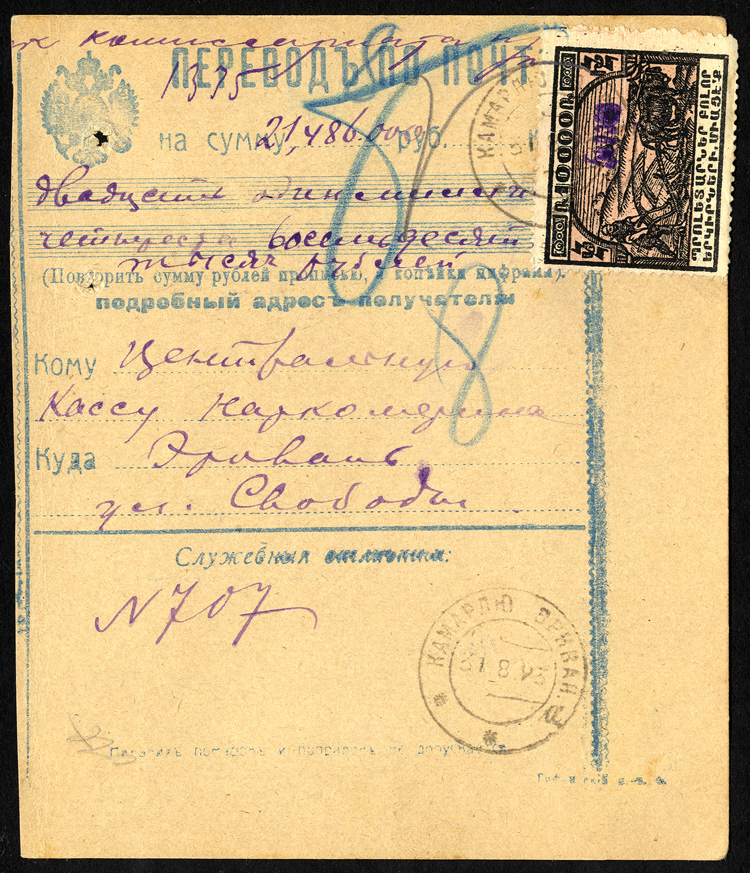 комиссариата
ПЕРЕВОДЪ ПО ПОЧТ
1375
на сумму 21,486.000 руб. К
двадцать один миллион
четыреста восемьдесят
тысяч рублей
(Повторить сумму рублей прописью, а копѣйки цифрами).
подробный адресъ получателя:
Кому Центральную
Кассу Наркомфина
Куда Эривань
ул. Свободы
Служебныя отмѣтки:
N 707
КАМАРЛЮ ЭРИВАН.
31.8.23
КАМАРЛЮ
Ռ.100000Ռ.
ՊՐՈԼԵՏԱՐՆԵՐ ԲՈԼՈՐ
ԵՐԿԻՐՆԵՐԻ, ՄԻԱՑԷՔ